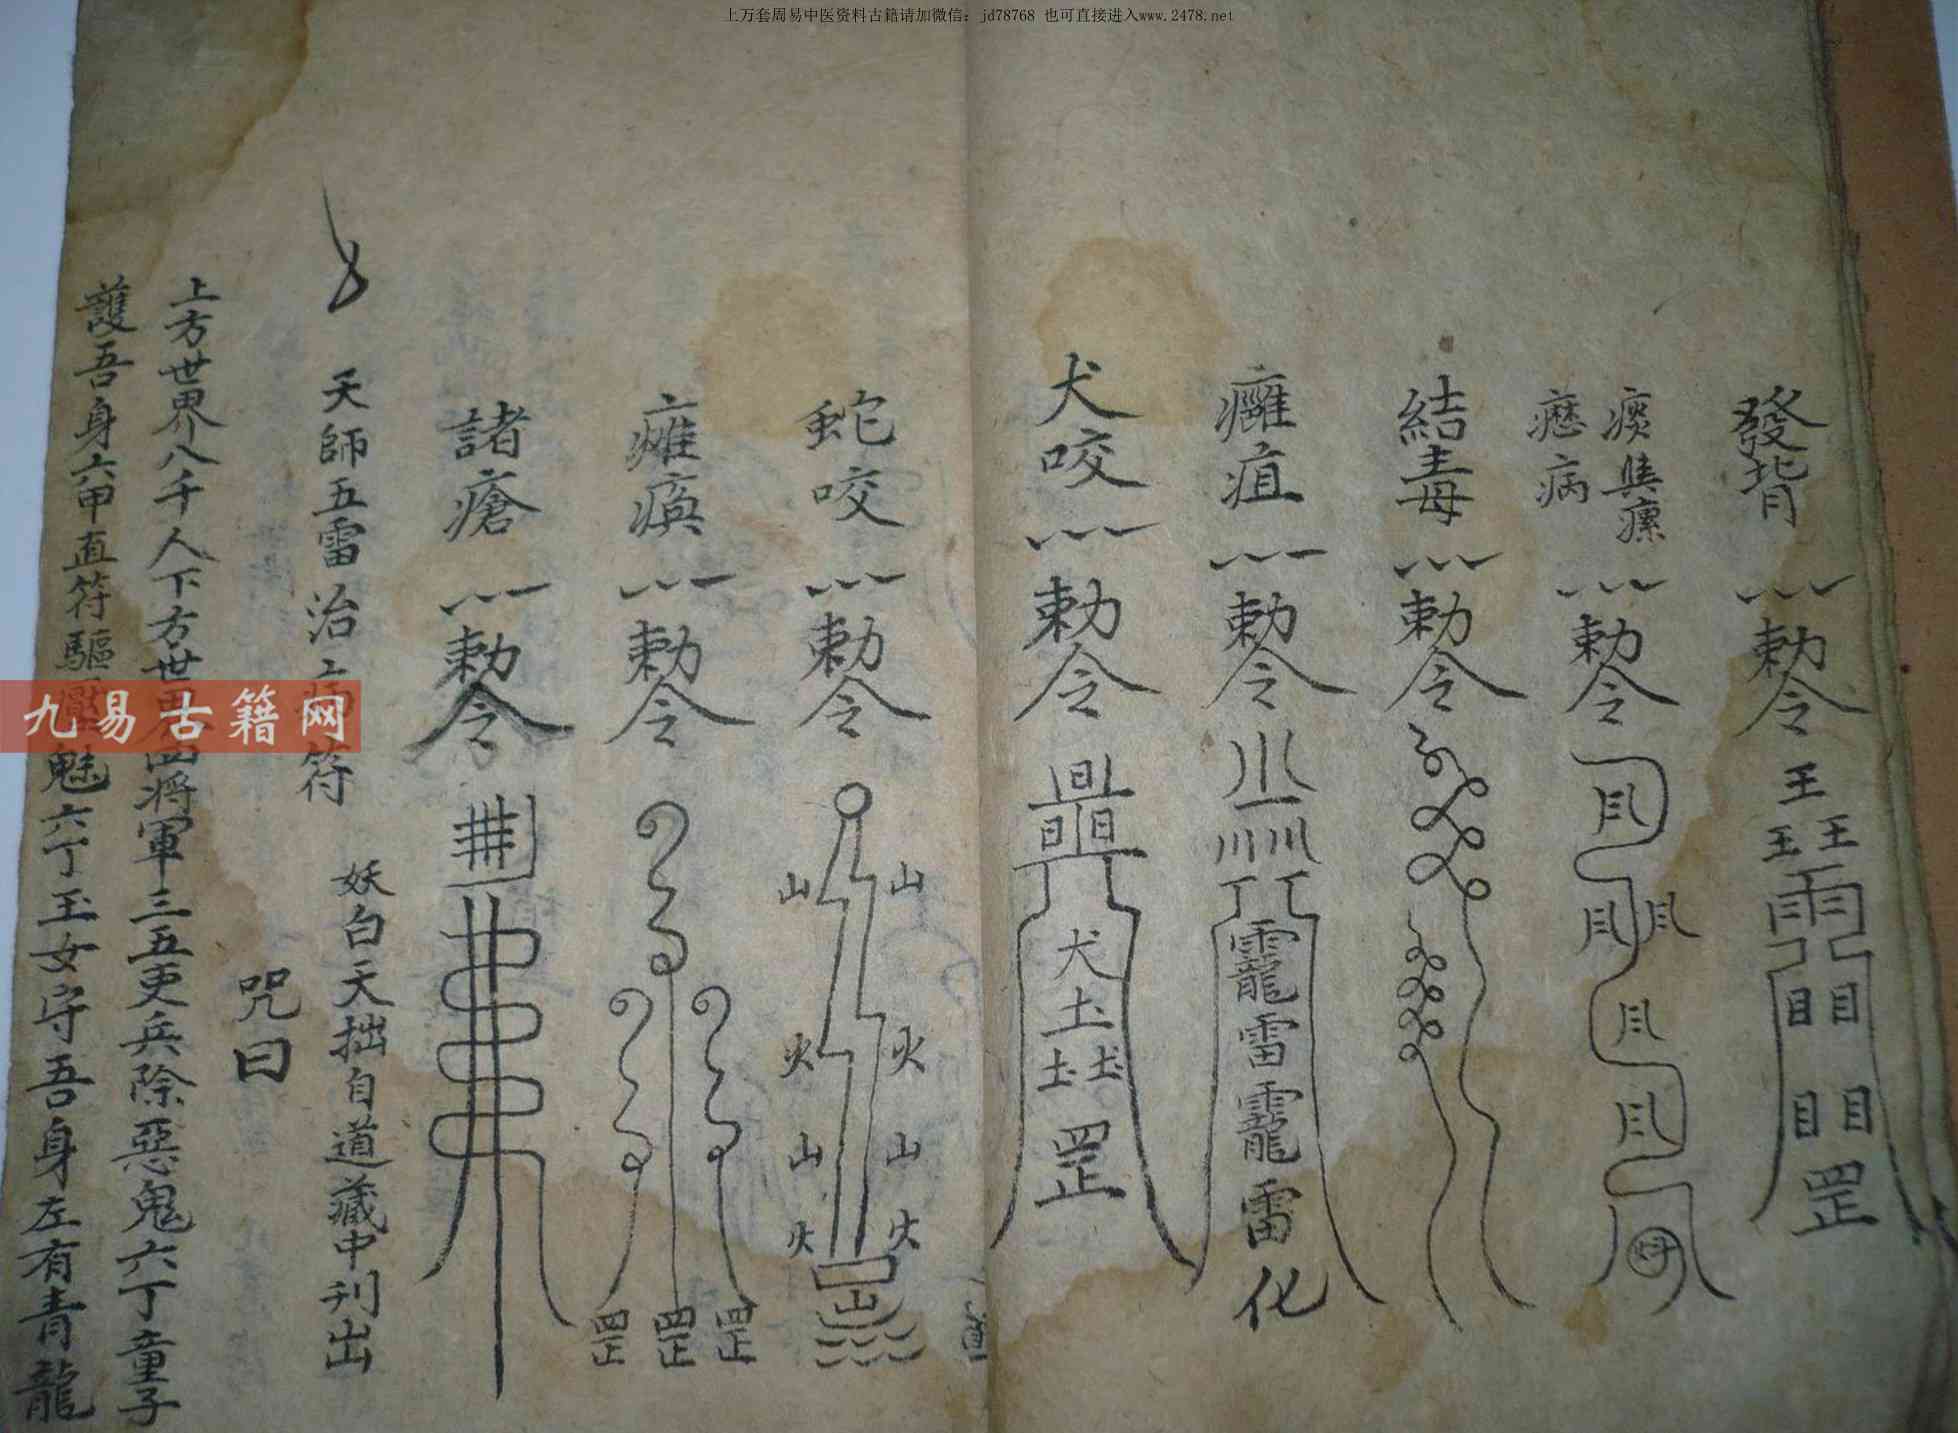 上万套周易中医资料古籍请加微信: jd78768 也可直接进入www.2478.net
發背 勅令 王 王王 雨 目目 目目 罡
痰 瘰 病 勅令
結毒 勅令
癰疽 勅令 靇雷靇雷 化
犬咬 勅令 犬 土 土土 罡
蛇咬 勅令 山山 火火 山山 火火 山
瘫瘓 勅令 罡罡罡
諸瘡 勅令
天師五雷治 符 妖白天拙自道藏中刊出
咒曰
上方世界八千人下方世 四將軍三五吏兵除惡鬼六丁童子
護吾身六甲直符驅 魅六丁玉女守吾身左有青龍
九易古籍网